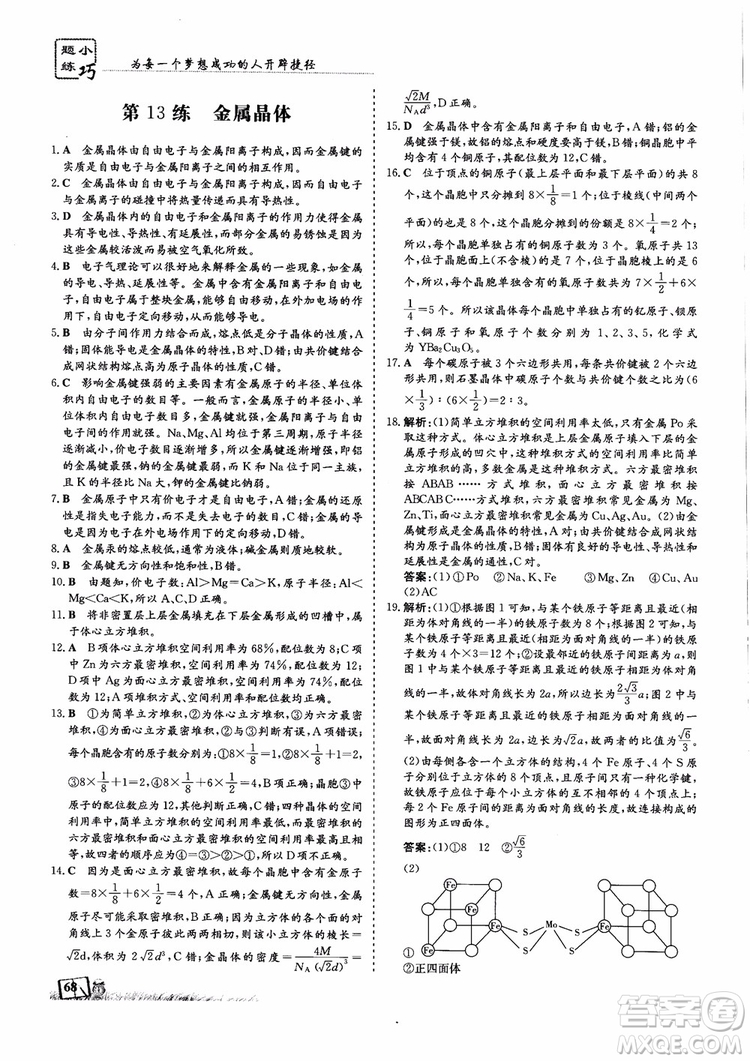 小
题
巧
练
为每一个梦想成功的人开辟捷径
第13练 金属晶体
1. A 金属晶体由自由电子与金属阳离子构成,金属键的
实质是自由电子与金属阳离子之间的作用。
2. C 金属晶体由自由电子与金属阳离子构成,自由电子
与金属离子的碰撞中将热量传递而具有导热性。
3. D 金属晶体内的自由电子和金属阳离子的作用使得金
属具有导电性、导热性、有延展性,而部分金属的易锈蚀是因
为这些金属较活泼而易被空气氧化所致。
4. B 电子气理论可以很好地来解释金属的一些现象,如金属
的导电、导热、延展性等。金属中含有金属阳离子和自由电
子,自由电子属于整块金属,能够自由移动,在外加电场的作
用下,自由电子定向移动,所以能够导电。
5. B 由分子间作用力结合而成,熔点低是分子晶体的性质,A
错;固体能导电是金属晶体的特性,B对、D错;由共价键结合
成网状结构,熔点高是原子晶体的性质,C错。
6. C 影响金属键强弱的主要因素有金属原子的半径、单位体
积内自由电子的数目等。一般而言,金属原子的半径越小、单
位体积内自由电子数目越大,金属键越强,金属阳离子与自由
电子间的作用就越强。Na、Mg、Al均位于第三周期,原子半径
逐渐减小,价电子数目逐渐增多,所以金属键逐渐增强,即铝
的金属键最强,钠的金属键最弱,而K和Na位于同一主族,
且K的半径比Na大,钾的金属键比钠弱。
7. A 金属原子中只有价电子才是自由电子;金属的还原
性是指失电子能力,而不是指失电子数目的多少;金属具有导
电性是因为自由电子定向移动,B、C、D错误。
8. A 金属汞的熔点较低,通常为液体;碱金属则质地较软。
9. B 金属键无方向性和饱和性,B错。
10. D 由题知,价电子数:Al>Mg=Ca>K;金属原子半径:Al<
Mg<Ca<K,所以A、C、D正确。
11. D 将非密置层上层金属填充在下层金属形成的凹槽中,
属于体心立方堆积。
12. A B项体心立方堆积空间利用率为68%,B项错误;C项
中Zn为六方最密堆积,空间利用率为74%,C项错误;
D项中Ag为面心立方最密堆积,空间利用率为74%,D项
错误;A项堆积方式、空间利用率、配位数均正确,A正确。
13. B ①为简单立方堆积、②为体心立方堆积、③为六方最密
堆积、④为面心立方最密堆积,①中原子个数为8×1/8=1,
②中每个晶胞含有的原子数分别为8×1/8+1=2,
③8×1/8+1=2,④8×1/8+6×1/2=4,B正确;晶胞③中
原子的配位数应为12,其他判断正确,A错;晶胞④是面心
立方最密堆积,②是体心立方堆积,C错;四种晶体的空间
利用率分别为52%、68%、74%、74%,所以空间利用率
六方最密堆积和面心立方最密堆积的空间利用率最高且相
等,故四者的顺序应为④=③>②>①,D错误。
14. C 因为是面心立方最密堆积,故每个晶胞中含有的铜原
子数为8×1/8+6×1/2=4,A错;金属键无方向性,金属
原子尽可能采取紧密堆积,B错;因为立方体的面对角线长
为4个金属原子半径之和,所以该小立方体的棱长=
√2d,每个面的面对角线为2√2 d,C对;金属晶体的密度为4M/(N_A(√2d)³)=
√2M/(N_Ad³),D错。
15. D 金属晶体中含有金属阳离子和自由电子,A错;铝的金
属键强于镁,故铝的熔点和沸点均高于镁,B错;铜晶胞平
均含有4个铜原子,其原子的配位数为12,C错误。
16. C 位于顶点的铜原子(最上层平面和最下层平面的顶
点),这个晶胞中只分摊到8×1/8=1个;位于棱线(中间两个
平面)的铜原子,这个晶胞分摊到的份额是8×1/4=2个,
平均每个晶胞单独占有的铜原子数为3个。氧原子共13
个,位于晶胞上面(不含棱)的共7个,位于晶胞棱上的6×
1/4=5个。所以,该晶体每个晶胞中单独占有的钇原子、钡原
子、铜原子和氧原子个数分别为1、2、3、5,化学式为
YBa₂Cu₃O₅。
17. A 每个碳原子被3个六边形共用,每条共价键被2个六边
形共用,则石墨晶体中碳原子数与共价键数之比为(6×
1/3):(6×1/2)=2:3。
18. 解析:(1)简单立方堆积的空间利用率太低,只有金属Po采
取这种方式。体心立方堆积是上层金属原子填入下层的金
属原子形成的凹穴中,这种堆积方式的空间利用率比简单
立方堆积的高,多数金属是这种堆积方式。六方最密堆积
按ABAB……方式堆积,面心立方最密堆积按
ABCABC……方式堆积,六方最密堆积常见金属为Mg、
Zn、Ti,面心立方最密堆积常见金属为Cu、Ag、Au。(2)由金
属键形成金属晶体的特性,A对;由共价键结合成网状
结构为原子晶体的结构,B错;固体有良好的导电性、导热性
和延展性是金属的通性,C对。
答案:(1)①Po ②Na、K、Fe ③Mg、Zn ④Cu、Au
(2)AC
19. 解析:(1)①根据图1可知,与某个铁原子等距离且最近的铁
原子为8个。根据图2可知,与某个铁原子等距离且最近的
铁原子处在面对角线的一半处,这样的原子共有
4个×3=12(个);②设最邻近的铁原子间距离为2a,则晶
胞图1中与某个铁原子等距离且最近的铁原子为体对角线
的一半,故体对角线的长度为2a,面对角线的长度为(2√3/3)a;图2
与某个铁原子等距离且最近的铁原子间的距离为面对角线的一
半,故面对角线长为2a,所以面对角线的比值为√6/3。
(2)①由题意知,每一个立方体的结构中,4个Fe原子、4个S原
子分别位于立方体的8个顶点,且同种原子间没有一种化学键,
故铁原子应位于每个小立方体的互不相邻的4个顶点上,
每2个铁原子的连线为面对角线的长度,故4个铁原子构成的
图形为正四面体。
答案:(1)①8 12 ②√6/3
(2)
Fe
Fe
Fe
Fe
S
S
Mo
S
S
Fe
Fe
Fe
Fe
①
②正四面体
68
答案圈
MXQE.COM